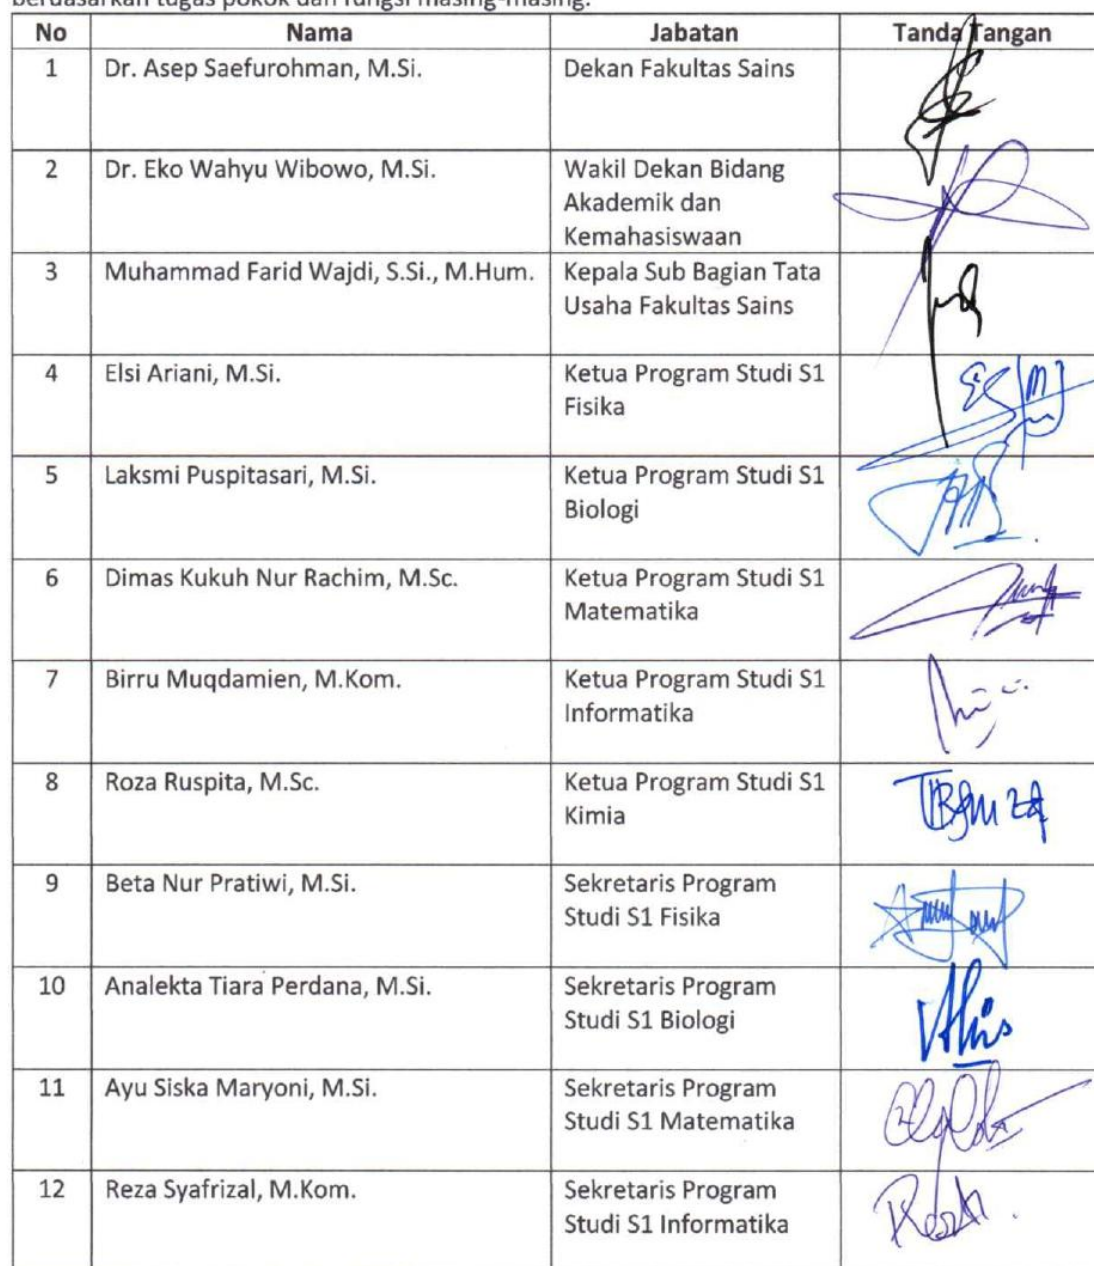 berdasarkan tugas pokok dan fungsi masing-masing.
No Nama Jabatan Tanda Tangan
1 Dr. Asep Saefurohman, M.Si. Dekan Fakultas Sains
2 Dr. Eko Wahyu Wibowo, M.Si. Wakil Dekan Bidang
Akademik dan
Kemahasiswaan
3 Muhammad Farid Wajdi, S.Si., M.Hum. Kepala Sub Bagian Tata
Usaha Fakultas Sains
4 Elsi Ariani, M.Si. Ketua Program Studi S1
Fisika
5 Laksmi Puspitasari, M.Si. Ketua Program Studi S1
Biologi
6 Dimas Kukuh Nur Rachim, M.Sc. Ketua Program Studi S1
Matematika
7 Birru Muqdamien, M.Kom. Ketua Program Studi S1
Informatika
8 Roza Ruspita, M.Sc. Ketua Program Studi S1
Kimia
9 Beta Nur Pratiwi, M.Si. Sekretaris Program
Studi S1 Fisika
10 Analekta Tiara Perdana, M.Si. Sekretaris Program
Studi S1 Biologi
11 Ayu Siska Maryoni, M.Si. Sekretaris Program
Studi S1 Matematika
12 Reza Syafrizal, M.Kom. Sekretaris Program
Studi S1 Informatika